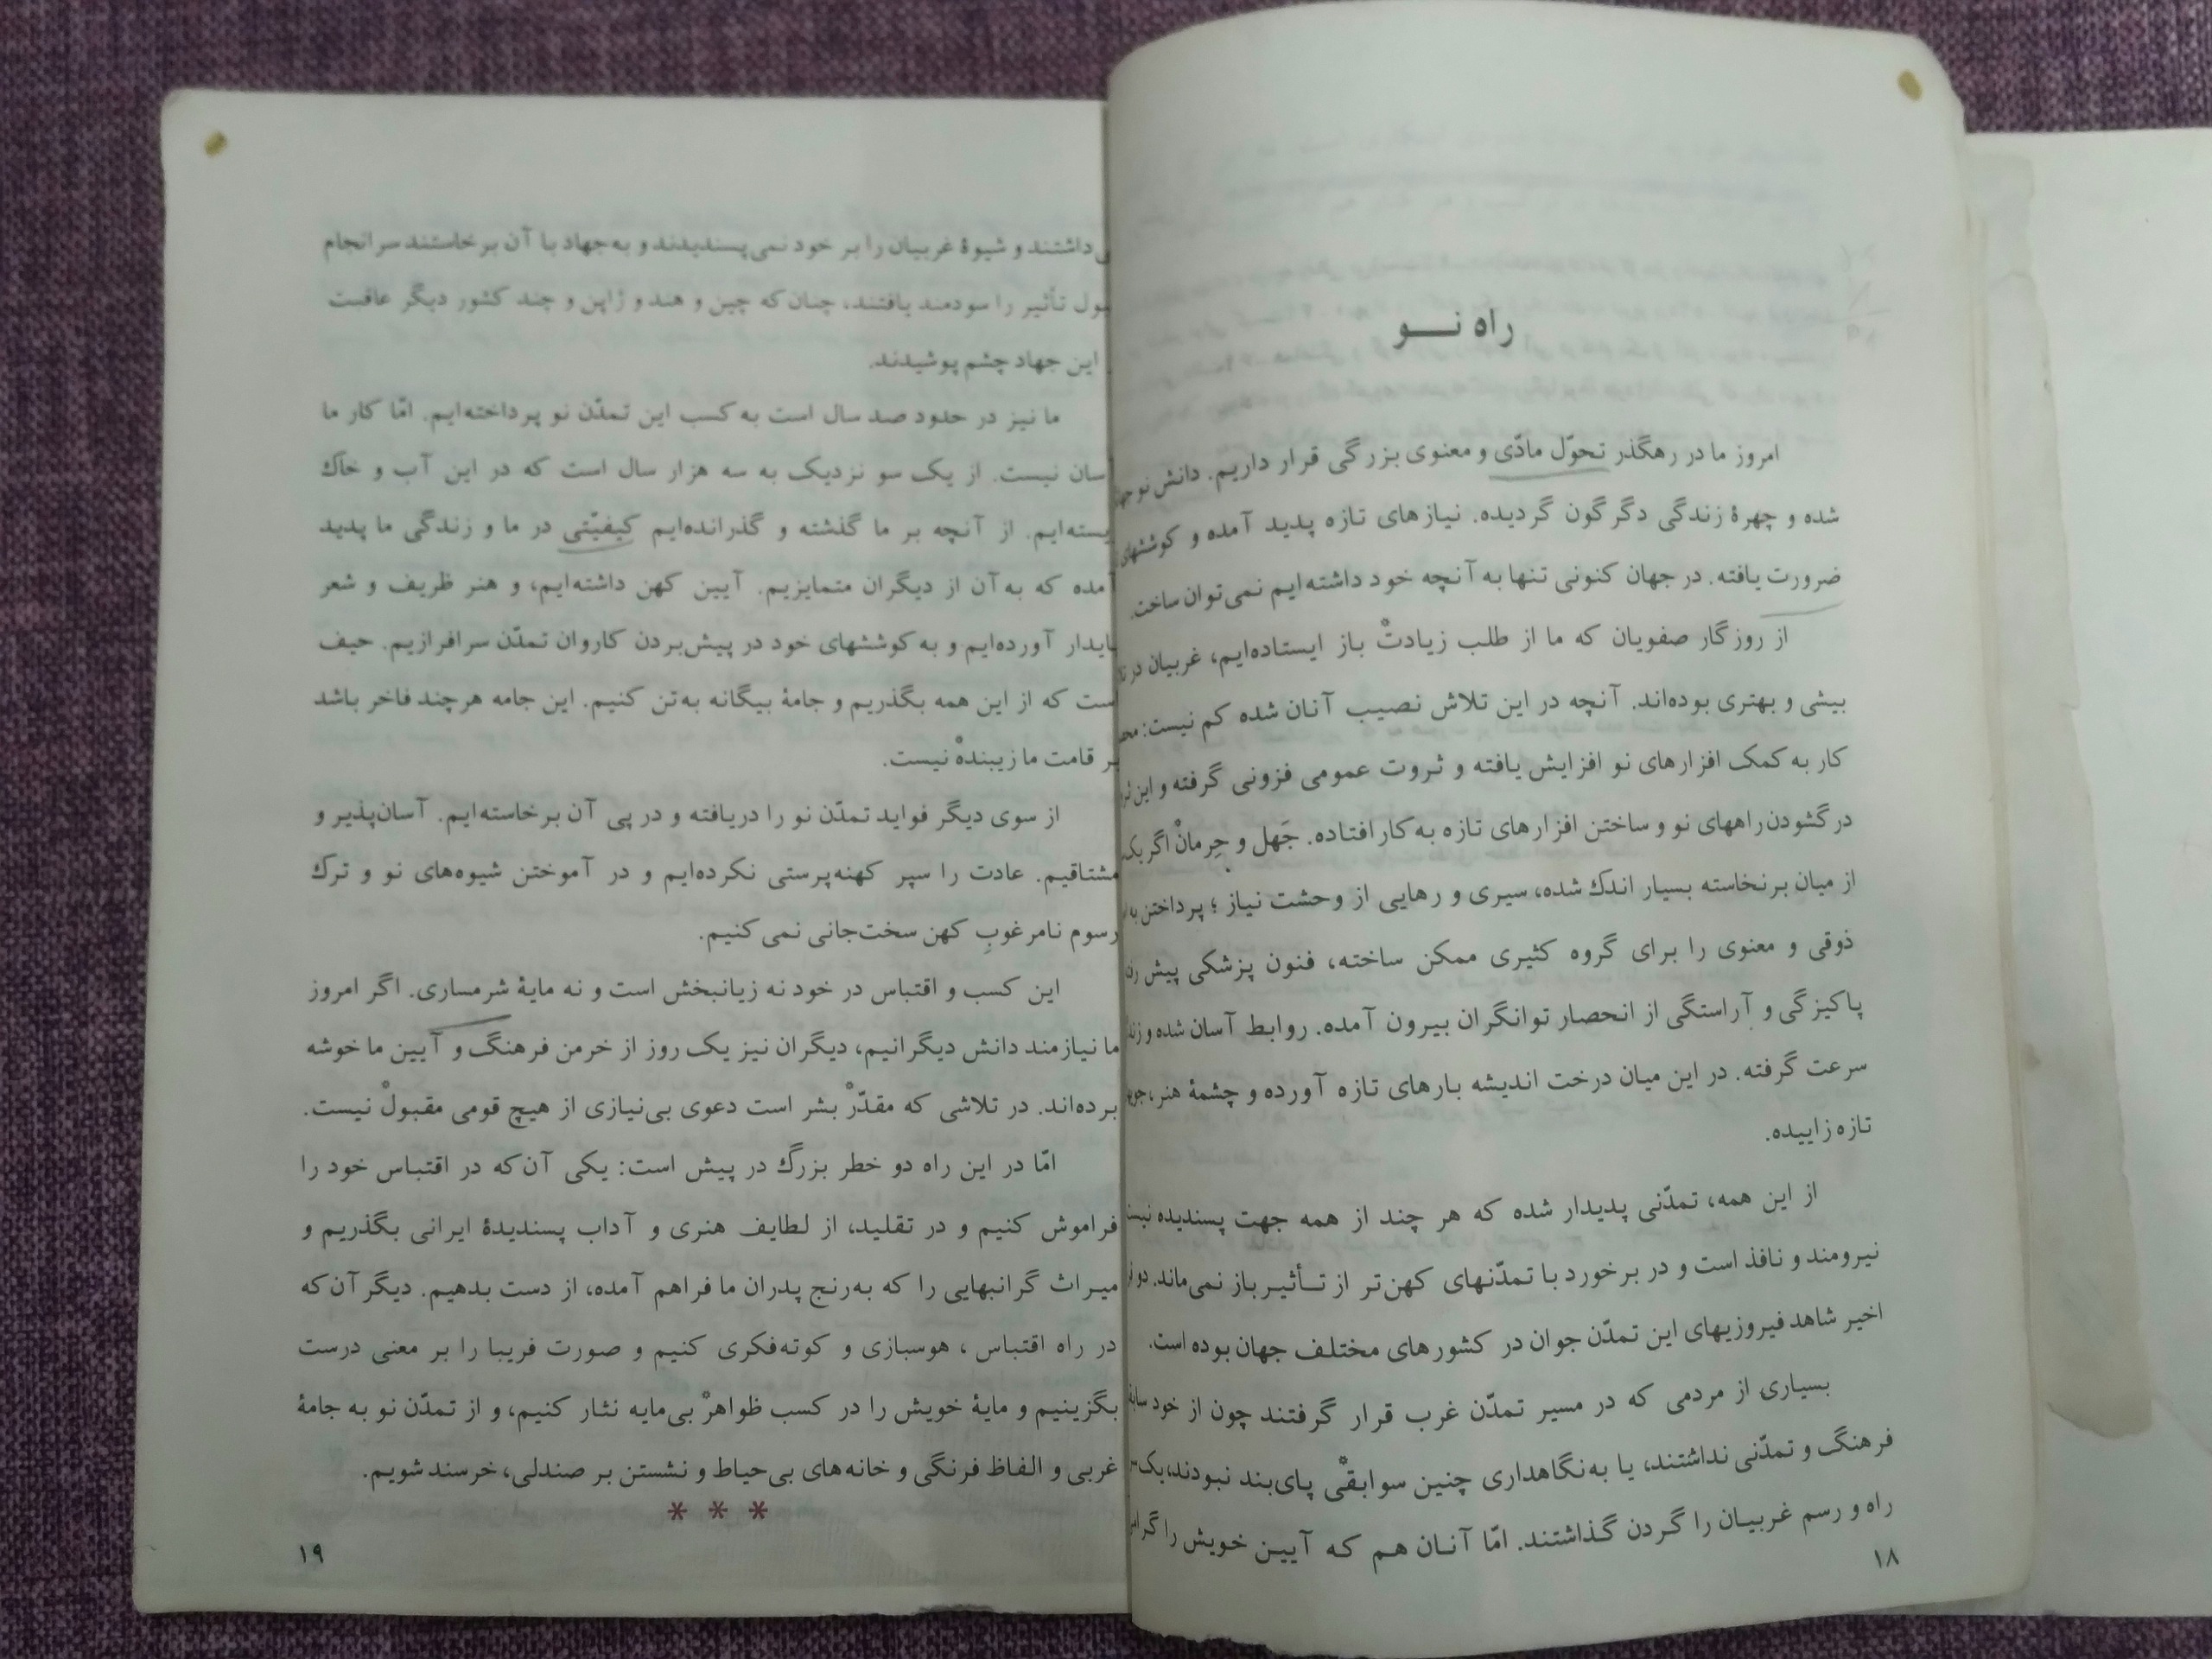 راه نو
امروز ما در رهگذر تحوّل مادّی و معنوی بزرگی قرار داریم. دانش نو
شده و چهرهٔ زندگی دگرگون گردیده. نیازهای تازه پدید آمده و کوششهای
ضرورت یافته. در جهان کنونی تنها به آنچه خود داشته‌ایم نمی‌توان ساخت.
از روزگار صفویان که ما از طلب زیادتْ باز ایستاده‌ایم، غربیان در
بیشی و بهتری بوده‌اند. آنچه در این تلاش نصیب آنان شده کم نیست:
کار به کمک افزارهای نو افزایش یافته و ثروت عمومی فزونی گرفته و این
در گشودن راههای نو و ساختن افزارهای تازه به کار افتاده. جَهل و حِرمانْ اگر
از میان برنخاسته بسیار اندك شده، سیری و رهایی از وحشت نیاز؛ پرداختن
ذوقی و معنوی را برای گروه کثیری ممکن ساخته، فنون پزشکی پیش
پاکیزگی و آراستگی از انحصار توانگران بیرون آمده. روابط آسان شده و
سرعت گرفته. در این میان درخت اندیشه بارهای تازه آورده و چشمهٔ هنر،
تازه زاییده.
از این همه، تمدّنی پدیدار شده که هر چند از همه جهت پسندیده
نیرومند و نافذ است و در برخورد با تمدّنهای کهن‌تر از تأثیر باز نمی‌ماند. دو
اخیر شاهد فیروزیهای این تمدّن جوان در کشورهای مختلف جهان بوده است.
بسیاری از مردمی که در مسیر تمدّن غرب قرار گرفتند چون از خود
فرهنگ و تمدّنی نداشتند، یا به‌نگاهداری چنین سوابقْی پای‌بند نبودند،
راه و رسم غربیان را گردن گذاشتند. امّا آنان هم که آیین خویش را
۱۸
داشتند و شیوهٔ غربیان را بر خود نمی‌پسندیدند و به‌جهاد با آن برخاستند سرانجام
تأثیر را سودمند یافتند، چنان که چین و هند و ژاپن و چند کشور دیگر عاقبت
این جهاد چشم پوشیدند.
ما نیز در حدود صد سال است به کسب این تمدّن نو پرداخته‌ایم. امّا کار ما
آسان نیست. از یک سو نزدیک به سه هزار سال است که در این آب و خاك
از آنچه بر ما گذشته و گذرانده‌ایم کیفیّتی در ما و زندگی ما پدید
آمده که به آن از دیگران متمایزیم. آیین کهن داشته‌ایم، و هنر ظریف و شعر
پایدار آورده‌ایم و به کوششهای خود در پیش‌بردن کاروان تمدّن سرافرازیم. حیف
است که از این همه بگذریم و جامهٔ بیگانه به‌تن کنیم. این جامه هرچند فاخر باشد
بر قامت ما زیبندهْ نیست.
از سوی دیگر فواید تمدّن نو را دریافته و در پی آن برخاسته‌ایم. آسان‌پذیر و
مشتاقیم. عادت را سپر کهنه‌پرستی نکرده‌ایم و در آموختن شیوه‌های نو و ترك
رسوم نامرغوبِ کهن سخت‌جانی نمی‌کنیم.
این کسب و اقتباس در خود نه زیانبخش است و نه مایهٔ شرمساری. اگر امروز
ما نیازمند دانش دیگرانیم، دیگران نیز یک روز از خرمن فرهنگ و آیین ما خوشه
برده‌اند. در تلاشی که مقدّرْ بشر است دعوی بی‌نیازی از هیچ قومی مقبولْ نیست.
امّا در این راه دو خطر بزرگ در پیش است: یکی آن‌که در اقتباس خود را
فراموش کنیم و در تقلید، از لطایف هنری و آداب پسندیدهٔ ایرانی بگذریم و
میراث گرانبهایی را که به‌رنج پدران ما فراهم آمده، از دست بدهیم. دیگر آن‌که
در راه اقتباس، هوسبازی و کوته‌فکری کنیم و صورت فریبا را بر معنی درست
بگزینیم و مایهٔ خویش را در کسب ظواهرْ بی‌مایه نثار کنیم، و از تمدّن نو به جامهٔ
غربی و الفاظ فرنگی و خانه‌های بی‌حیاط و نشستن بر صندلی، خرسند شویم.
* * *
۱۹